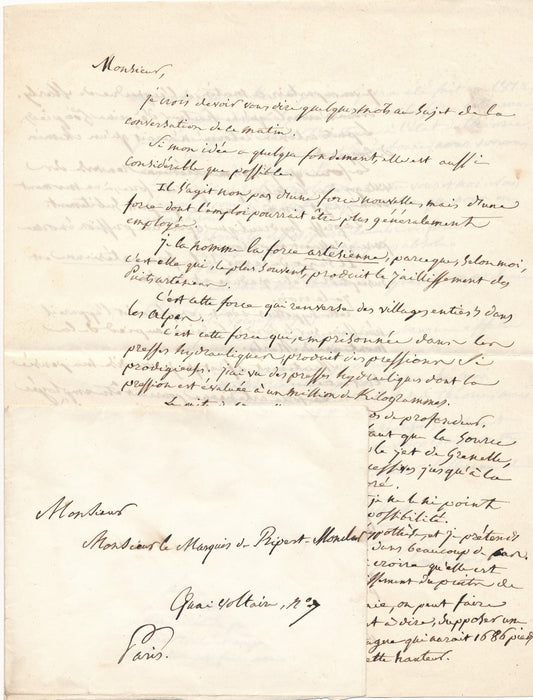 Monsieur,
je crois devoir vous dire quelques mots au sujet de la
conversation de ce matin.
Si mon idée a quelque fondement, elle est aussi
considérable que possible.
Il s'agit non pas d'une force nouvelle, mais d'une
force dont l'emploi pourrait être plus généralement
employée.
je la nomme la force artésienne, parceque, selon moi,
c'est elle qui, le plus souvent, produit le jaillissement des
Puits artésiens.
C'est cette force qui renverse des villages entiers dans
les Alpes.
C'est cette force qui, emprisonnée dans les
presses hydrauliques, produit des pressions si
prodigieuses. j'ai vu des presses hydrauliques dont la
pression est évaluée à un million de Kilogrammes.
de profondeur,
faut que la source
le jet de Grenelle,
jusqu'à la
je ne le nie point
possibilité.
et je prétends
dans beaucoup de
croire qu'elle est
du puits de
on peut faire
à dire, supposer un
qui aurait 1686 pieds
cette hauteur.
Monsieur
Monsieur le Marquis de Ripert-Monclar
Quai Voltaire, n° 7
Paris.